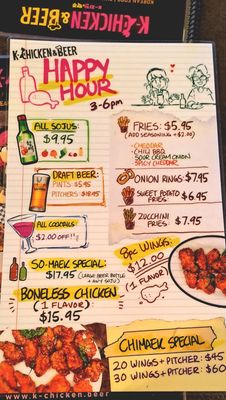 K-CHICKEN & BEER
KOREAN FOOD
K-CHICKEN & BEER
HAPPY
HOUR
3-6PM
ALL SOJUS:
$9.95
DRAFT BEER:
PINTS: $5.95
PITCHERS: $18.95
ALL COCKTAILS:
$2.00 OFF!!
SO-MAEK SPECIAL:
$17.95 (LARGE BEER BOTTLE
+ ANY SOJU)
BONELESS CHICKEN
(1 FLAVOR)
$15.95
FRIES: $5.95
(ADD SEASONING +$2.00)
-CHEDDAR
-CHILI BBQ
-SOUR CREAM ONION
-SPICY CHEDDAR
ONION RINGS $7.95
SWEET POTATO
FRIES: $6.95
ZUCCHINI
FRIES: $7.95
8PC WINGS:
$12.00
(1 FLAVOR)
CHIMAEK SPECIAL
20 WINGS + PITCHER: $45
30 WINGS + PITCHER: $60
www.k-chicken.beer